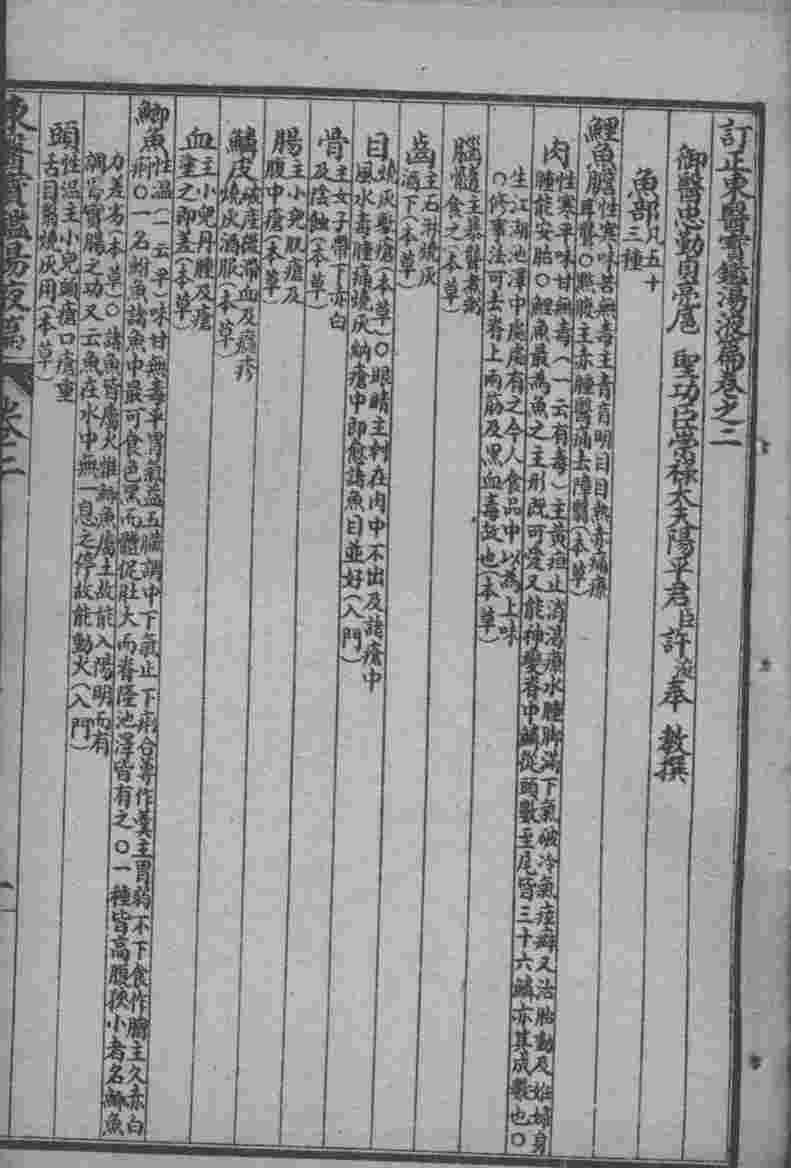 訂正東醫寶鑑湯液篇卷之二
御醫忠勤貞亮扈 聖功臣崇祿大夫陽平君臣許浚奉 敎撰
魚部凡五十三種
鯉魚膽性寒味苦無毒主靑盲明目目熱赤痛療
耳聾○點腹主赤腫瞖痛去障瞖(本草)
肉性寒平味甘無毒(一云有毒)主黃疸止消渴療水腫脚滿下氣破冷氣痃癖又治胎動及妊婦身
腫能安胎○鯉魚最爲魚之主形旣可愛又能神變脊中鱗從頭數至尾皆三十六鱗亦其成數也○
生江湖池澤中處處有之今人食品中以爲上味
○修事法可去脊上兩筋及黑血毒故也(本草)
腦髓主異聾煮粥
食之(本草)
齒主石淋燒灰
酒下(本草)
目燒灰髮瘡(本草)○眼睛主刺在肉中不出及諸瘡中
風水毒腫痛燒灰納瘡中卽愈諸魚目並好(入門)
骨主女子帶下赤白
及陰蝕(本草)
腸主小兒肌瘡及
腹中瘡(本草)
鱗皮破產後滯血及癮疹
燒灰酒服(本草)
血主小兒丹腫及瘡
塗之卽差(本草)
鯽魚性溫(一云平)味甘無毒平胃氣益五臟調中下氣止下痢合蓴作羹主胃弱不下食作膾主久赤白
痢○一名鮒魚諸魚中最可食色黑而體促肚大而脊隆池澤皆有之○一種背高腹狹小者名鯽魚
力差劣(本草)○諸魚皆屬火惟鯽魚屬土故能入陽明而有
調胃實腸之功又云魚在水中無一息之停故能動火(入門)
頭性溫主小兒頭瘡口瘡重
舌目瞖燒灰用(本草)
東醫寶鑑湯液篇 卷二 一